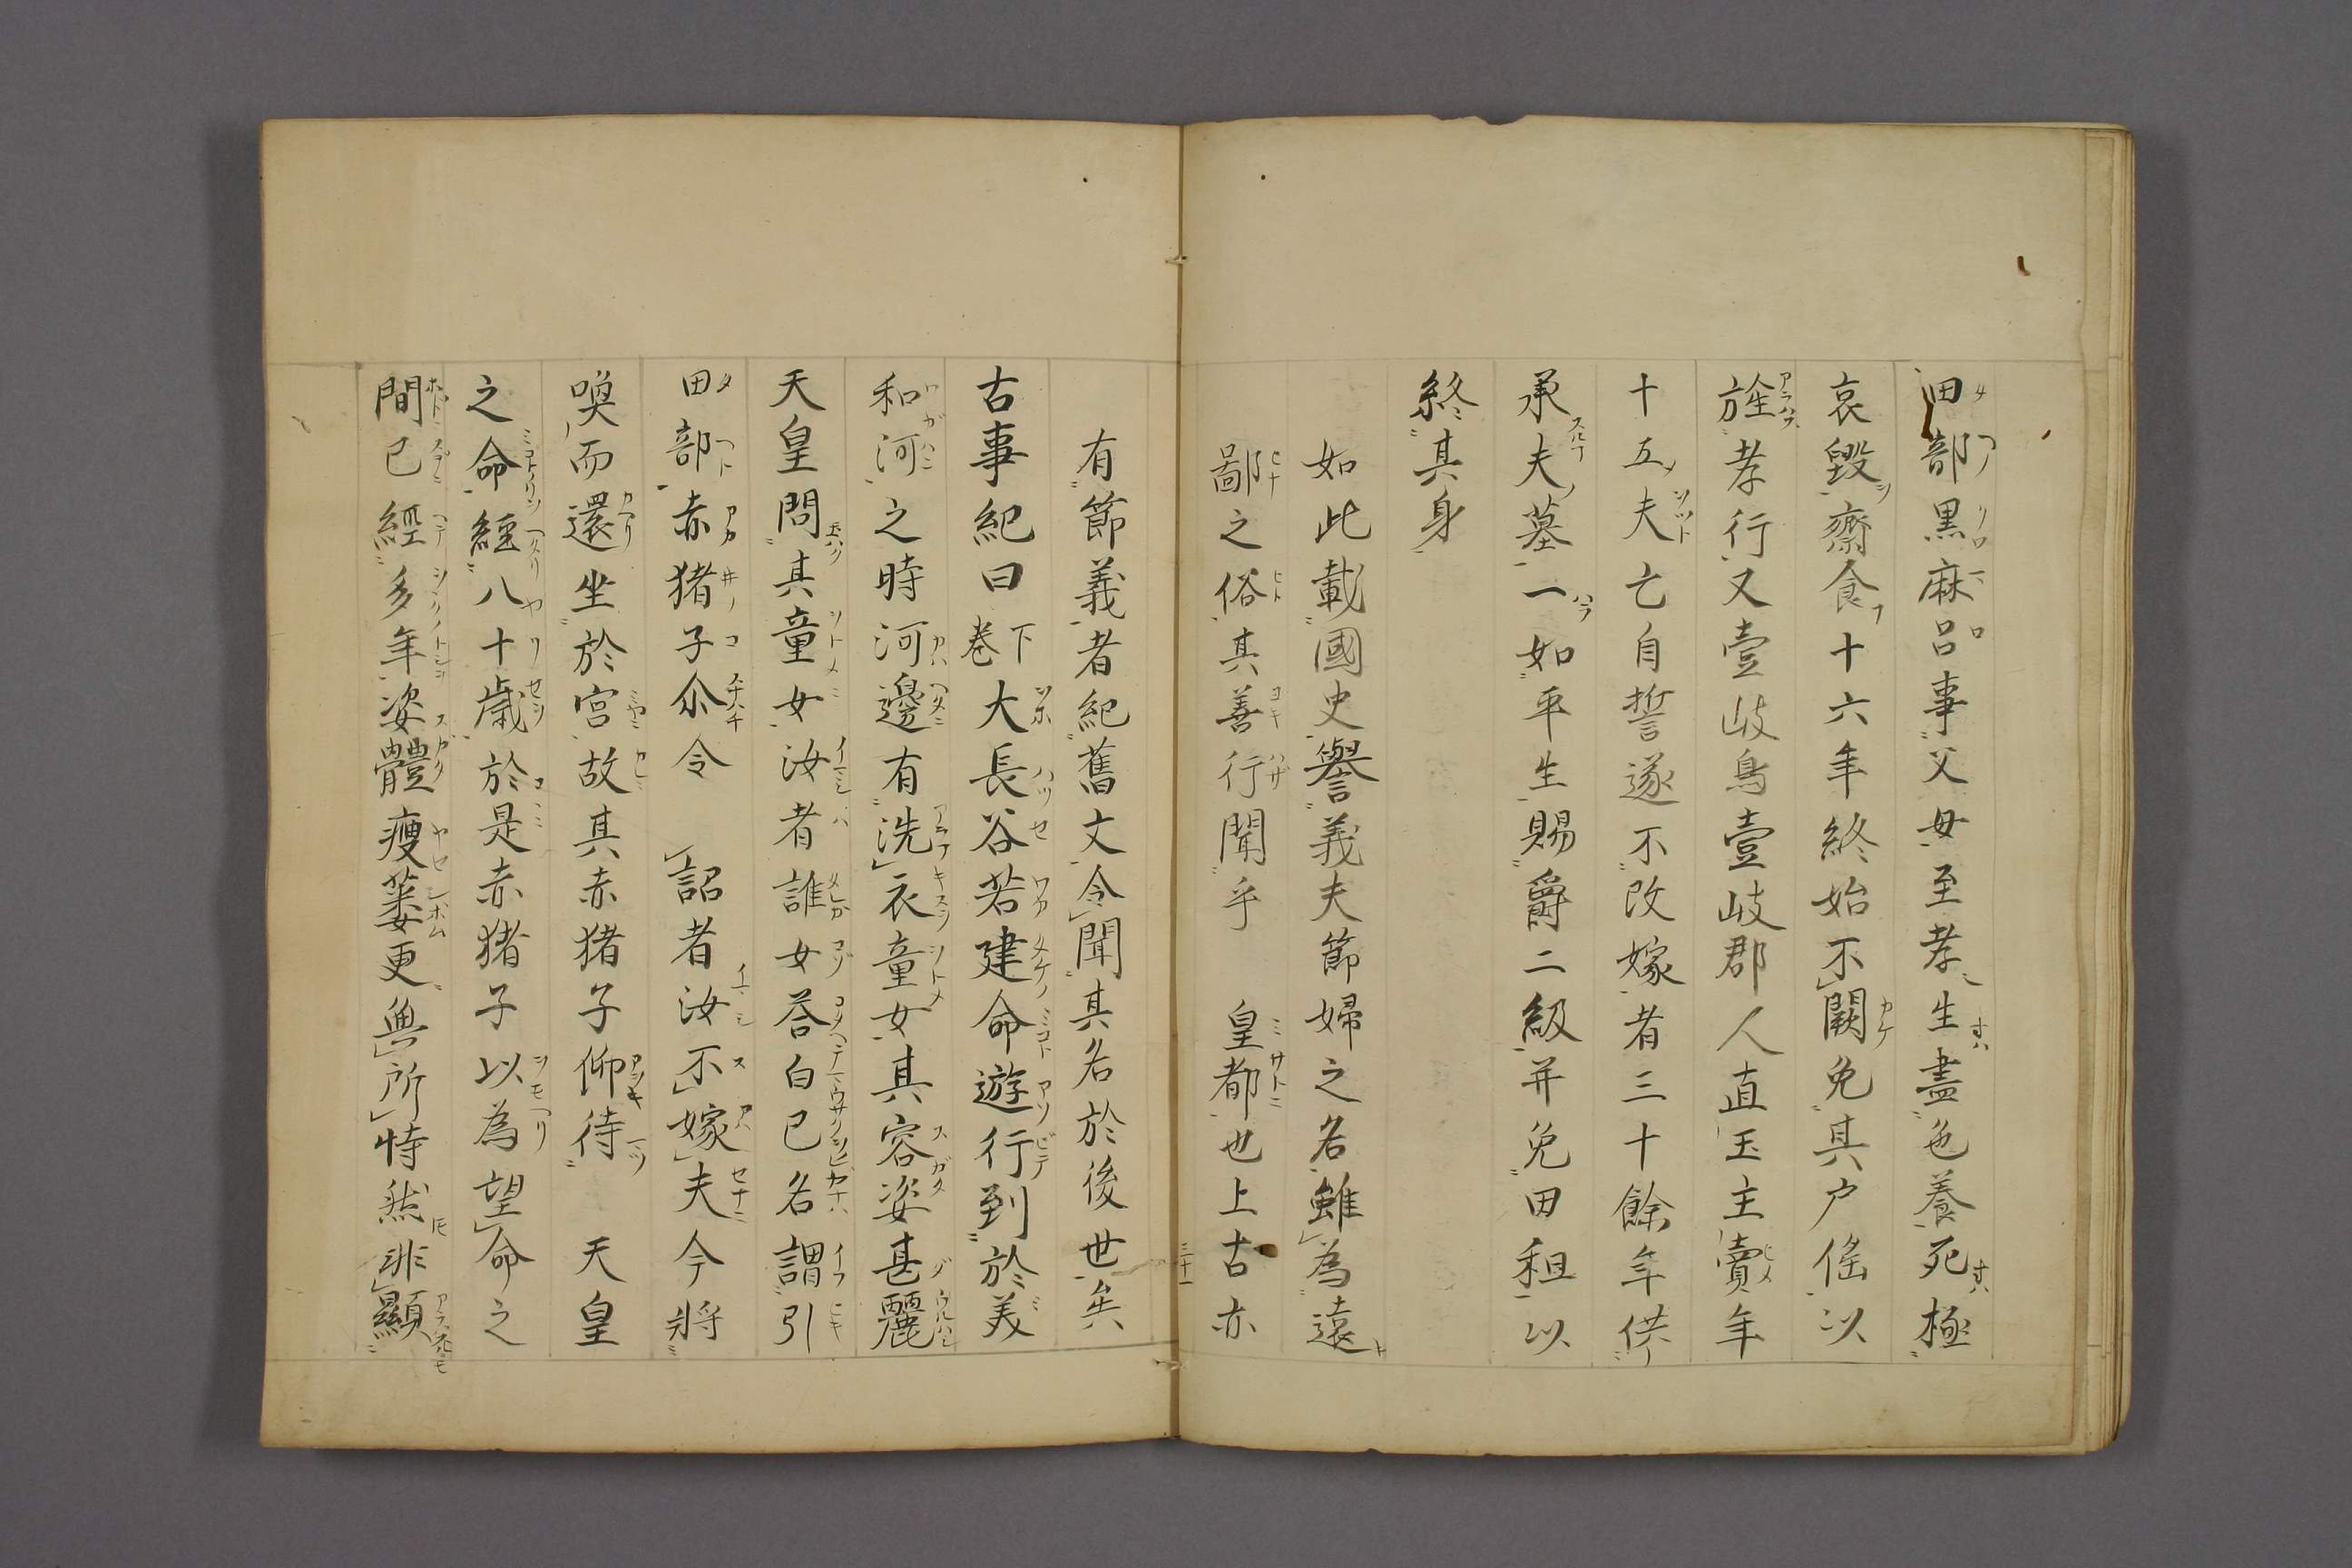 田部黒麻呂事父母至孝生盡色養死極
哀毀齋食十六年終始不闕免其戸徭以
旌孝行又壹岐島壹岐郡人直玉主賣年
十五夫亡自誓遂不改嫁者三十餘年供
承夫墓一如平生賜爵二級并免田租以
終其身
如此載國史譽義夫節婦之名雖為遠
鄙之俗其善行聞乎　皇都也上古亦
三十一
有節義者紀舊文令聞其名於後世矣
古事紀曰下卷大長谷若建命遊行到於美
和河之時河邊有洗衣童女其容姿甚麗
天皇問其童女汝者誰女答白已名謂引
田部赤猪子尒令　詔者汝不嫁夫今將
喚而還坐於宮故其赤猪子仰待　天皇
之命經八十歲於是赤猪子以為望命之
間已經多年姿體瘦萎更無所恃然非顯